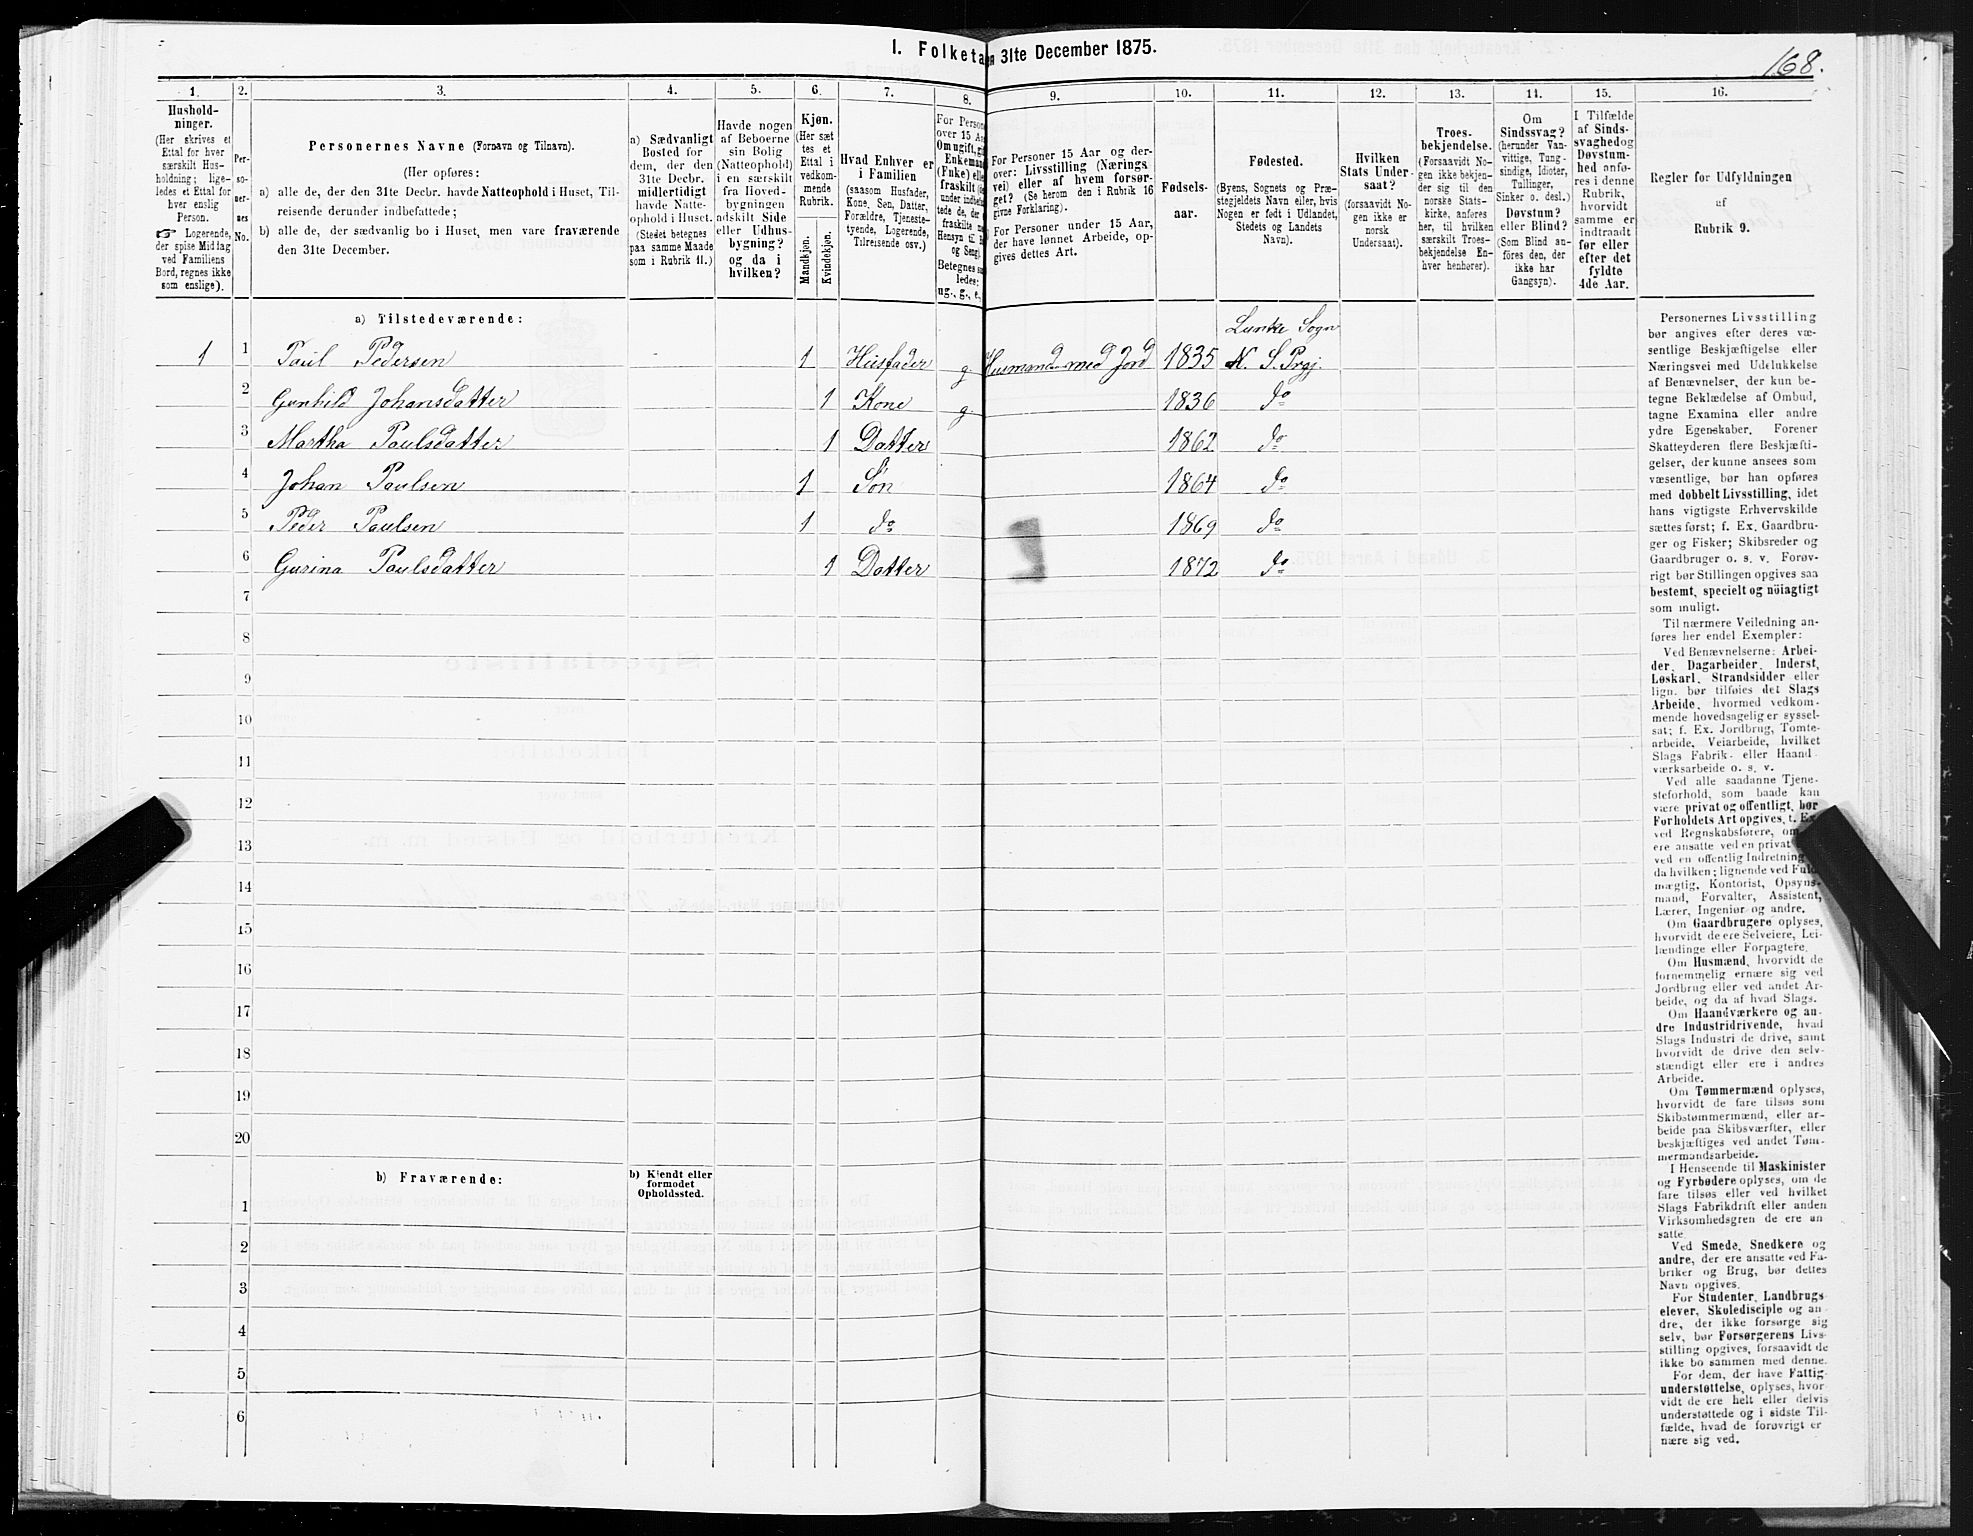 I. Folketa
n 31te December 1875.
168.
1. 2. 3. 4. 5. 6. 7. 8. 9. 10. 11. 12. 13. 14. 15. 16.
Hushold-
ninger.
(Her skrives et
Ettal for hver
særskilt Hus-
holdning; lige-
ledes et Ettal for
hver enslig
Person.
☞ Logerende,
der spise Middag
ved Familiens
Bord, regnes ikke
som enslige).
Per-
so-
ner-
nes
No.
Personernes Navne (Fornavn og Tilnavn).
(Her opføres:
a) alle de, der den 31te Decbr. havde Natteophold i Huset, Til-
reisende derunder indbefattede;
b) alle de, der sædvanlig bo i Huset, men vare fraværende
den 31te December.
a) Sædvanligt
Bosted for
dem, der den
31te Decbr.
midlertidigt
havde Natte-
ophold i Huset.
(Stedet betegnes
paa samme Maade
som i Rubrik 11.)
Havde nogen
af Beboerne
sin Bolig
(Natteophold)
i en særskilt
fra Hoved-
bygningen
adskilt Side
eller Udhus-
bygning?
og da i
hvilken?
Kjøn.
(Her sæt
tes et
Ettal i
vedkom-
mende
Rubrik.
Mandkjøn.
Kvindekjøn.
Hvad Enhver er
i Familien
(saasom Husfader,
Kone, Søn, Datter,
Forældre, Tjeneste-
tyende, Logerende,
Tilreisende osv.)
For Person
over 15 Aa
Om ugift, gi
Enkemand
(Enke) elle
fraskilt
under indbef
tede de, der
fraskilte
Hensyn til
og Seng).
Betegnes s
ledes:
ug., g., e.,
For Personer 15 Aar og der-
over: Livsstilling (Nærings
vei) eller af hvem forsør-
get? (Se herom den i Rubrik 16
givne Forklaring).
For Personer under 15 Aar,
der have lønnet Arbeide, op-
gives dettes Art.
Fødsels-
aar.
Fødested.
(Byens, Sognets og Præ-
stegjeldets Navn eller, hvis
Nogen er født i Udlandet,
Stedets og Landets
Navn).
Hvilken
Stats Under-
saat?
(forsaavidt No-
gen ikke er
norsk
Undersaat).
Troes-
bekjendelse.
(Forsaavidt No-
gen ikke bekjen-
der sig til den
norske Stats-
kirke, anføres
her, til hvilken
særskilt Troes-
bekjendelse En-
hver henhører).
Om
Sindssvag?
(herunder Van-
vittige, Tung-
sindige, Idioter,
Tullinger,
Sinker o. desl.)
Døvstum?
eller Blind?
(Som Blind an-
føres den, der
ikke har
Gangsyn).
I Tilfælde
af Sinds-
svaghed og
Døvstum-
hed anfø-
res i denne
Rubrik,
hvorvidt
samme er
indtraadt
før eller
efter det
fyldte
4de Aar.
Regler for Udfyldningen
af
Rubrik 9.
a) Tilstedeværende:
Lunke Sogn
1 1 Paul Pedersen 1 Husfader g. Husmand med Jord 1835 N. S. Prgj.
2 Gunhild Johansdatter 1 Kone g. 1836 do
3 Martha Paulsdatter 1 Datter 1862 do
4 Johan Paulsen 1 Søn 1864 do
5 Peder Paulsen 1 do 1869 do
6 Gurina Paulsdatter 1 Datter 1872 do
7
8
9
10
11
12
13
14
15
16
17
18
19
20
b) Fraværende:
b) Kjendt eller
formodet
Opholdssted.
1
2
3
4
5
6
Personernes Livsstilling
bør angives efter deres væ-
sentlige Beskjæftigelse eller
Næringsvei med Udelukkelse
af Benævnelser, der kun be-
tegne Beklædelse af Ombud,
tagne Examina eller andre
ydre Egenskaber. Forener
Skatteyderen flere Beskjæfti-
gelser, der kunne ansees som
væsentlige, bør han opføres
med dobbelt Livsstilling, idet
hans vigtigste Erhvervskilde
sættes først; f. Ex. Gaardbru-
ger og Fisker; Skibsreder og
Gaardbruger o. s. v. Forøv-
rigt bør Stillingen opgives saa
bestemt, specielt og nöiagtigt
som muligt.
Til nærmere Veiledning an-
føres her endel Exempler:
Ved Benævnelserne: Arbei-
der, Dagarbeider, Inderst,
Løskarl, Strandsidder eller
lign. bør tilføies det Slags
Arbeide, hvormed vedkom-
mende hovedsagelig er syssel-
sat; f. Ex. Jordbrug, Tomte-
arbeide, Veiarbeide, hvilket
Slags Fabrik- eller Haand-
værksarbeide o. s. v.
Ved alle saadanne Tjene-
steforhold, som baade kan
være privat og offentligt, bør
Forholdets Art opgives, t. Ex.
ved Regnskabsførere, om
ere ansatte ved en privat
ved en offentlig Indretning
da hvilken; lignende ved Fuld
mægtig, Kontorist, Opsyns-
mand, Forvalter, Assistent,
Lærer, Ingeniør og andre.
Om Gaardbrugere oplyses,
hvorvidt de ere Selveiere, Lei-
lændinge eller Forpagtere.
Om Husmænd, hvorvidt de
fornemmelig ernære sig ved
Jordbrug eller ved andet Ar-
beide, og da af hvad Slags.
Om Haandværkere og an-
dre Industridrivende, hvad
Slags Industri de drive, samt
hvorvidt de drive den selv-
stændigt eller ere i andres
Arbeide.
Om Tømmermænd oplyses,
hvorvidt de fare tilsøs som
Skibstømmermænd, eller ar-
beide paa Skibsværfter, eller
beskjæftiges ved andet Tøm-
mermandsarbeide.
I Henseende til Maskinister
og Fyrbødere oplyses, om de
fare tilsøs eller ved hvilket
Slags Fabrikdrift eller anden
Virksomhedsgren de ere an-
satte
Ved Smede, Snedkere og
andre, der ere ansatte ved Fa-
briker og Brug, bør dettes
Navn opgives.
For Studenter, Landbrugs
elever, Skoledisciple og an-
dre, der ikke forsørge sig
selv, bør Forsørgerens Livs-
stilling opgives, forsaavidt de
ikke bo sammen med denne.
For dem, der have Fattig-
understøttelse, oplyses, hvor-
vidt de ere helt eller delvis
understøttede og i sidste Til-
fælde, hvad de forøvrigt er
nære sig ved.